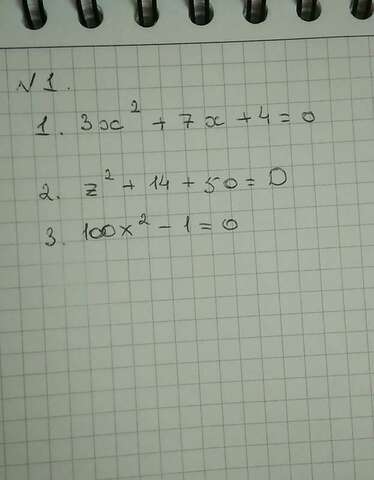 №1.
1. 3x² + 7x + 4 = 0
2. z² + 14 + 50 = 0
3. 100x² - 1 = 0